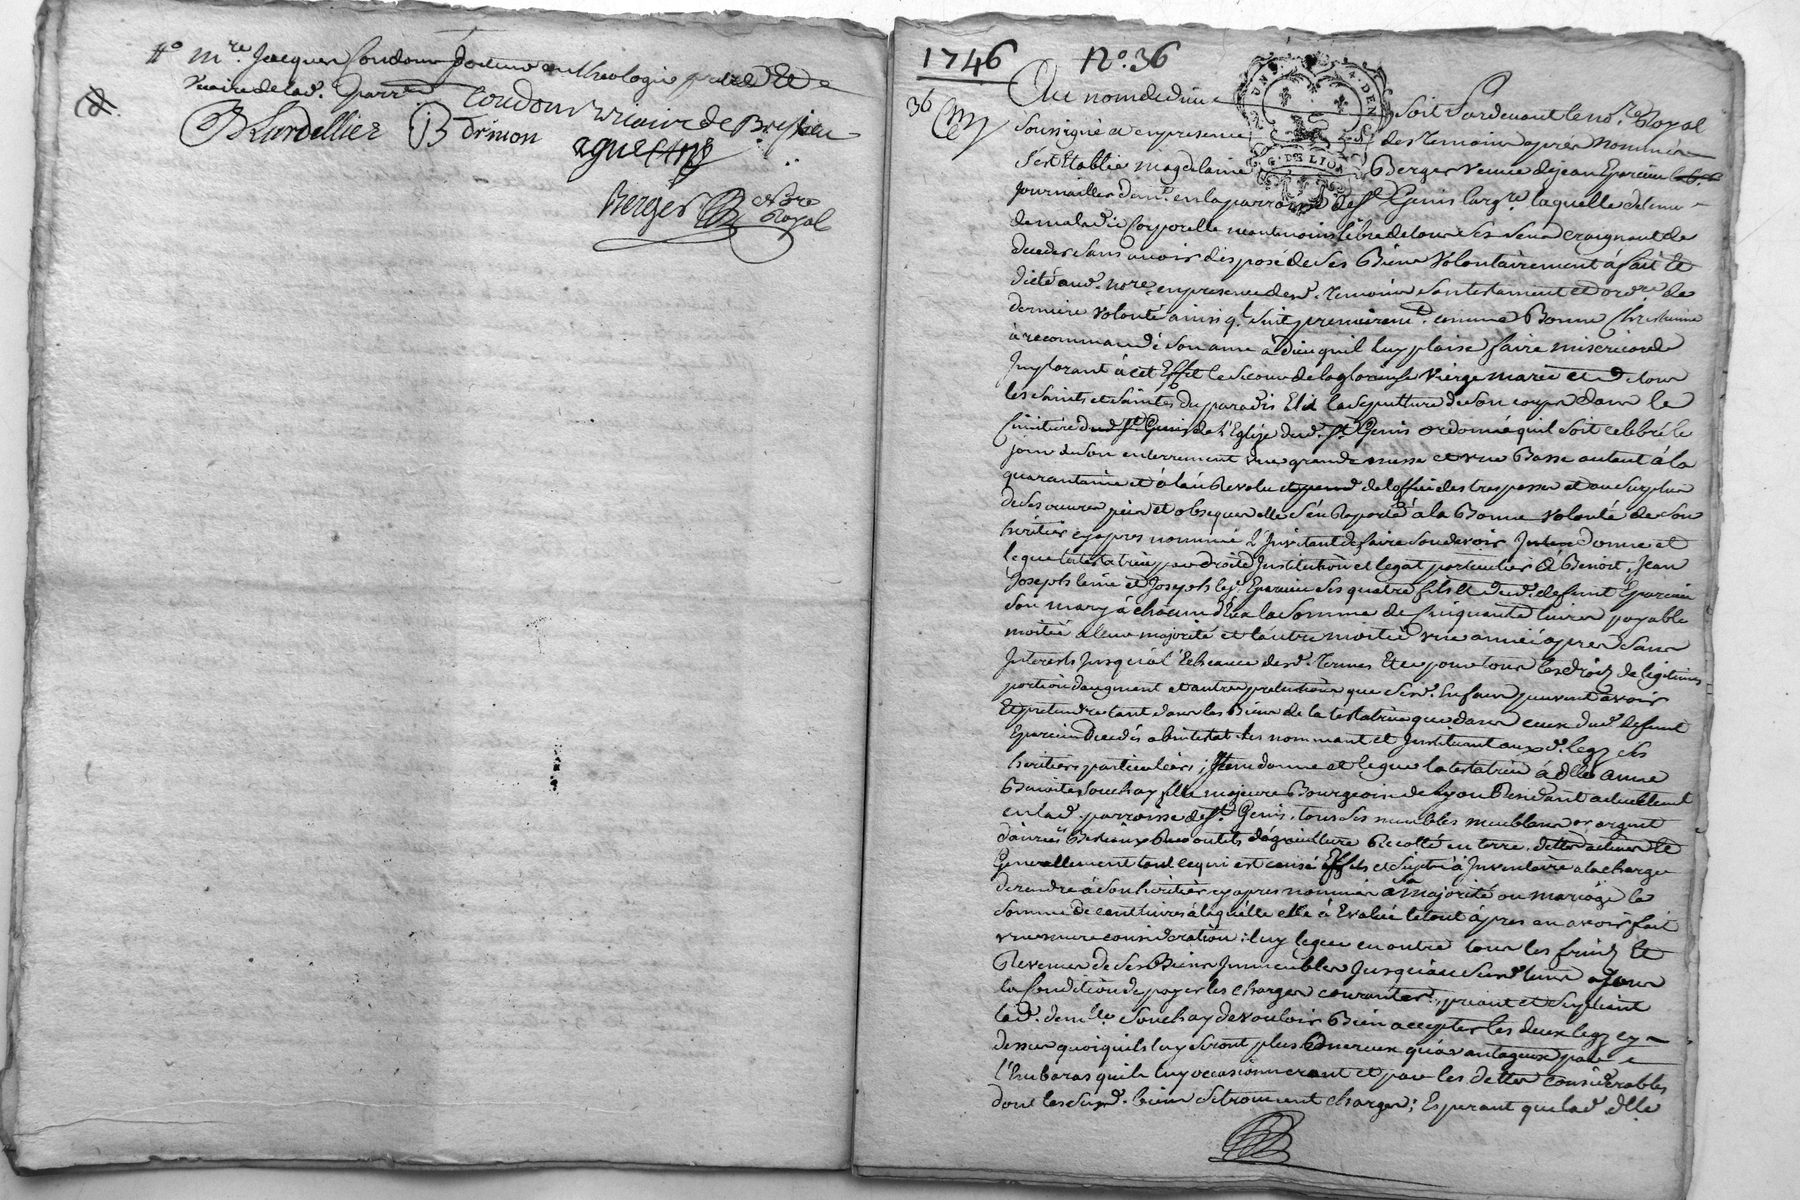 # mre Jacques Condour docteur en theologie prêtre et
vicaire de lad. parr.
B Lardellier B drinon Condour vicaire de
Berger Nre
Royal
1746 No. 36
36
Au nom de dieu soit Pardevant le nore Royal
soussigné et en presence des temoins aprés nommés
s'est Etablie magdelaine Berger veuve de jean Eparcieu
journallier dem.t en la parroisse de St Genis largre. laquelle detenue
de maladie Corporelle neantmoins libre de tous ses sens craignant de
deceder sans avoir disposé de ses Biens Volontairement á fait et
dicté aud. nore en presence desd. temoins son testament et ordre de
derniere volonté ainsi q. suit premierem.t comme Bonne Chretienne
à recommandé son ame à Dieu quil luy plaise faire misericorde
Implorant á cet Effet le secour de la glorieuse Vierge marie et d. tous
les saints et saintes du paradis Elit la sepulture de son corps dans le
Cimitiere dud St Genis de l'Eglise dud. St Genis ordonne quil soit celebré le
jour de son enterrement une grande messe et une Basse autant á la
quarantaine et á l'an Revolu de l'office des trespassés et au surplus
de ses œuvres pies et obseques elle s'en Raporte á la Bonne volonté de son
heritier cy apres nommé L'Invitant de faire son devoir Item donne et
legue la testatrice par droit d'Institution et legat particulier á Benoit, Jean
Joseph lainé et Joseph le j.e Eparcieu ses quatre fils et dud. defunt Eparcieu
son mary á chacun d'Eux la somme de Cinquante livres payable
moitié á leur majorité et lautre moitié une année apres sans
Interests Jusquá l'Echeance desd. termes Et ce pour tous les droits de legitimes
portion d'augment et autres pretentions que sesd. Enfans peuvent avoir
Et pretendre tant dans les Biens de la testatrice que dans ceux dud defunt
Eparcieu Decedé abintestat les nommant et Instituant auxd. legs ses
heritiers particuliers; Item donne et legue la testatrice á dlle anne
Benoite Souchay fille majeure Bourgeoise de Lyon Residant actuellement
en lad. parroisse de St Genis, tous ses meubles meublans or argent
danrées Bestiaux outils dagriculture Recolte en terre, dettes actives Et
Generallement tout ce qui est censé Effets et sujet á Inventaire a la charge
de rendre á son heritier cy apres nommé á sa majorité ou mariage la
somme de cent livres á laquelle elle á Evalué le tout ápres en avoir fait
une mure consideration; luy legue en outre tous les fruits Et
Revenus de ses Biens Immeubles Jusquau susd. tems sous
la Condition de payer les charges courantes, priant et supliant
lad. demlle. Souchay de vouloir Bien accepter les deux legs cy
dessus quoiquils luy seront plus Onereux quávantageux par
l'Enbaras quils luy occasionneront et par les dettes considerables
dont les susd. biens se trouvent chargés; Esperant que lad. dlle